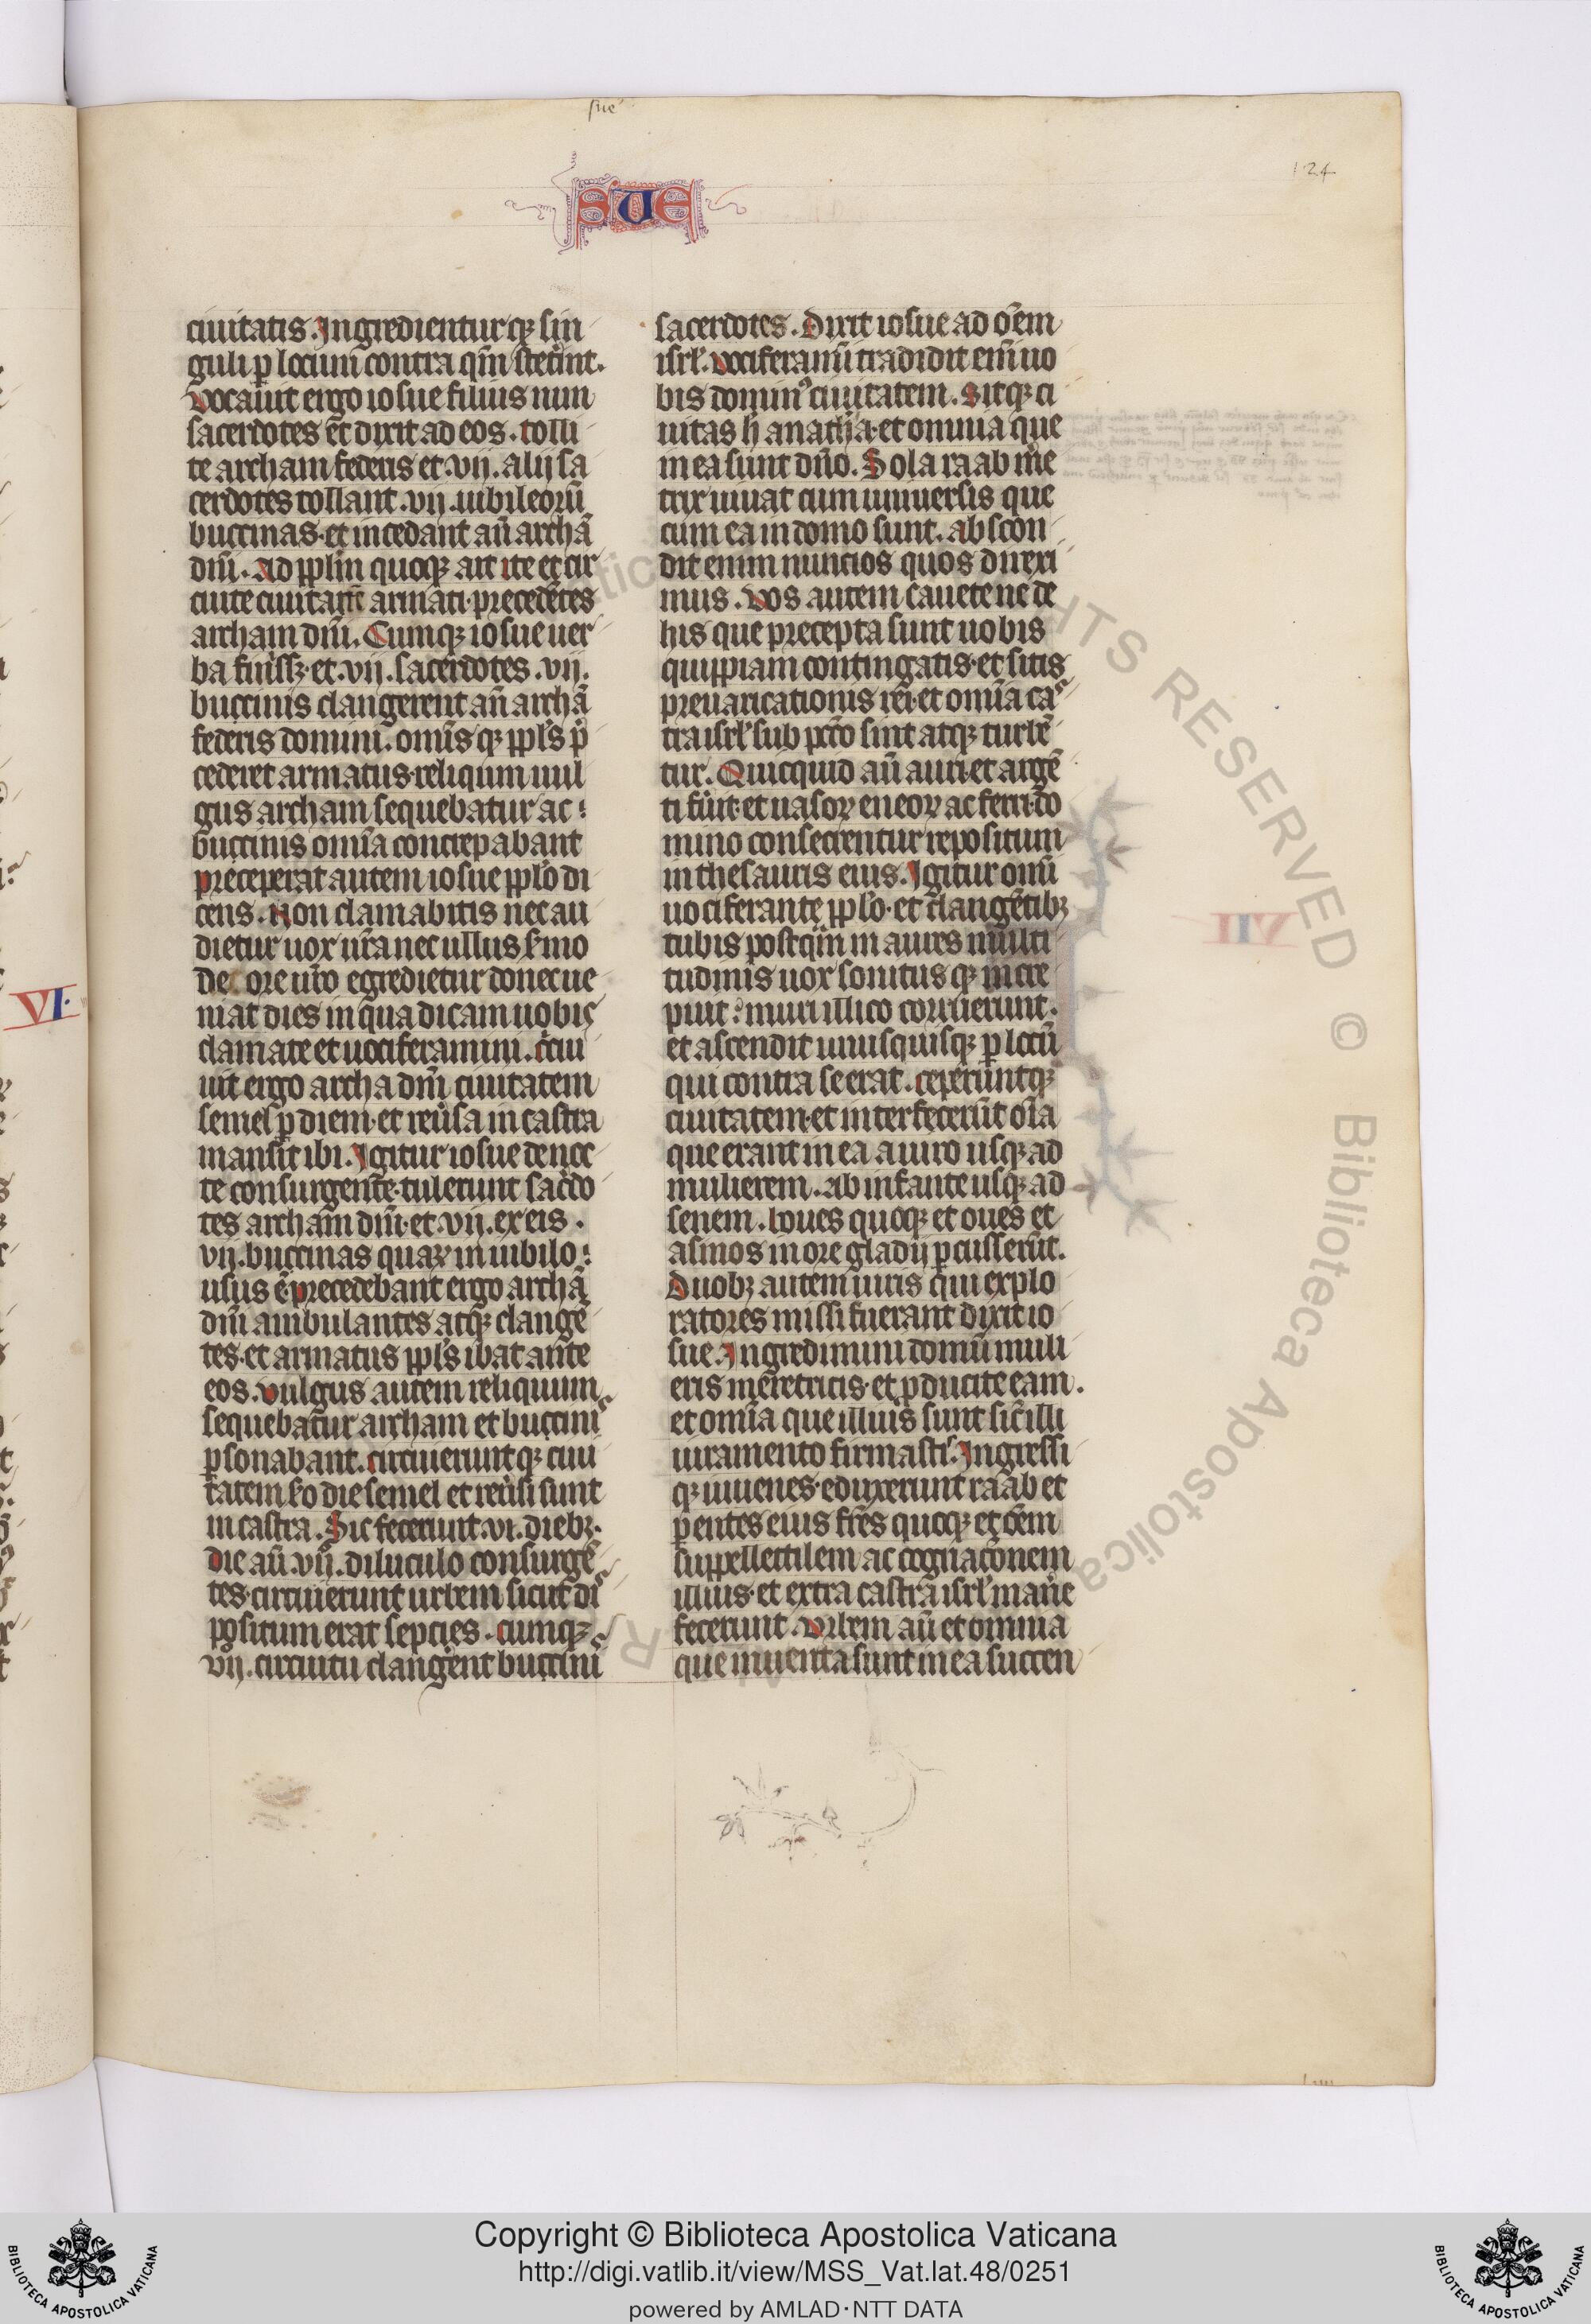 sue
124
SUE
ciuitatis. Ingredienturq; sin
guli p̱ locum contra qm̄ stet̾int.
Vocauit ergo iosue filius nun
sacerdotes et̄ dixit ad eos. tolli
te archam federis et .vij. alij sa
cerdotes tollant .vij. iubileoru᷑
buccinas. et incedant an̄ archā
dn̄i. Ad pp̄lm quoq; ait ite et cir
cuite ciuitatē armati. precedētes
archam dn̄i. Cumq; iosue uer
ba finiss; et .vij. sacerdotes .vij.
buccinis clangerent an̄ archā
federis domini. omīs q; pp̄ls p̄
cederet armatus. reliqum uul
gus archam sequebatur ac
buccinis omīa concrepabant
preceperat autem iosue pp̄lo di
cens. Non clamabitis nec au
dietur uox ur̄a nec ullus s̾mo
de ore ur̄o egredietur donec ue
niat dies in qua dicam uobis
clamate et uociferamini. c̾cui
uit ergo archa dn̄i ciuitatem
semel p̱ diem. et reu̾sa in castra
mansit ibi. Igitur iosue de noc
te consurgente. tulerunt sac̾do
tes archam dn̄i. et .vij. ex eis.
vij. buccinas quaꝝ in iubilo
usus ē. precedebant ergo archā
dn̄i ambulantes atq; clangē
tes. et armatus pp̄ls ibat ante
eos. vulgus autem reliquum
sequebatur archam et buccinis
p̱sonabant. circuieruntq; ciui
tatem s̾o die semel et reu̾si sunt
in castra. Sic fecerunt .vi. dieb;.
die au᷑ .vij. diluculo consurgē
tes. circuierunt urbem sicut dis
positum erat septies. cumq;
vij. circuitu clang̾ent buccinis
sacerdotes. Dixit iosue ad om̄em
isrl̄. vociferamī tradidit eni᷑ uo
bis domin᷒ ciuitatem. Sitq; ci
uitas h̄ anathīa. et omnia que
in ea sunt dn̄o. Sola raab m̾e
trix uiuat cum uniuersis que
cum ea in domo sunt. abscon
dit enim nuncios quos direxi
mus. vos autem cauete ne de
his que precepta sunt uobis
quippiam contingatis. et sitis
preuaricationis rei. et omīa cas
tra isrl̄ sub pcc̄o sint atq; turbē
tur. Quicquid au᷑ auri. et argē
ti fu̾it. et uasoꝝ eneoꝝ ac ferri. do
mino consecrentur repositum
in thesauris eius. Igitur omī
uociferante pp̄lo. et clangētib;
tubis postqm̄ in aures multi
tudinis uox sonitus q; incre
puit. muri illico corruerunt.
et ascendit unusquisq; p̱ locu᷑
qui contra se erat. ceperuntq;
ciuitatem. et interfecerūt om̄ia
que erant in ea a uiro usq; ad
mulierem. ab infante usq; ad
senem. boues quoq; et oues et
asinos in ore gladij p̱cusserūt.
Duob; autem uiris qui explo
ratores missi fuerant dixit io
sue. Ingredimini domu᷑ muli
eris meretricis. et ꝓducite eam.
et omīa que illius sunt sic̄ illi
iuramento firmastis. Ingressi
q; iuuenes. eduxerunt raab et
p̱entes eius fr̄es quoq; et om̄em
suppellectilem ac cognacōnem
illius. et extra castra isrl̄ man̾e
fecerunt. Vrbem au᷑ et omnia
que inuenta sunt in ea succen
VI.
Copyright © Biblioteca Apostolica Vaticana
http://digi.vatlib.it/view/MSS_Vat.lat.48/0251
powered by AMLAD·NTT DATA
BIBLIOTECA APOSTOLICA VATICANA
BIBLIOTECA APOSTOLICA VATICANA